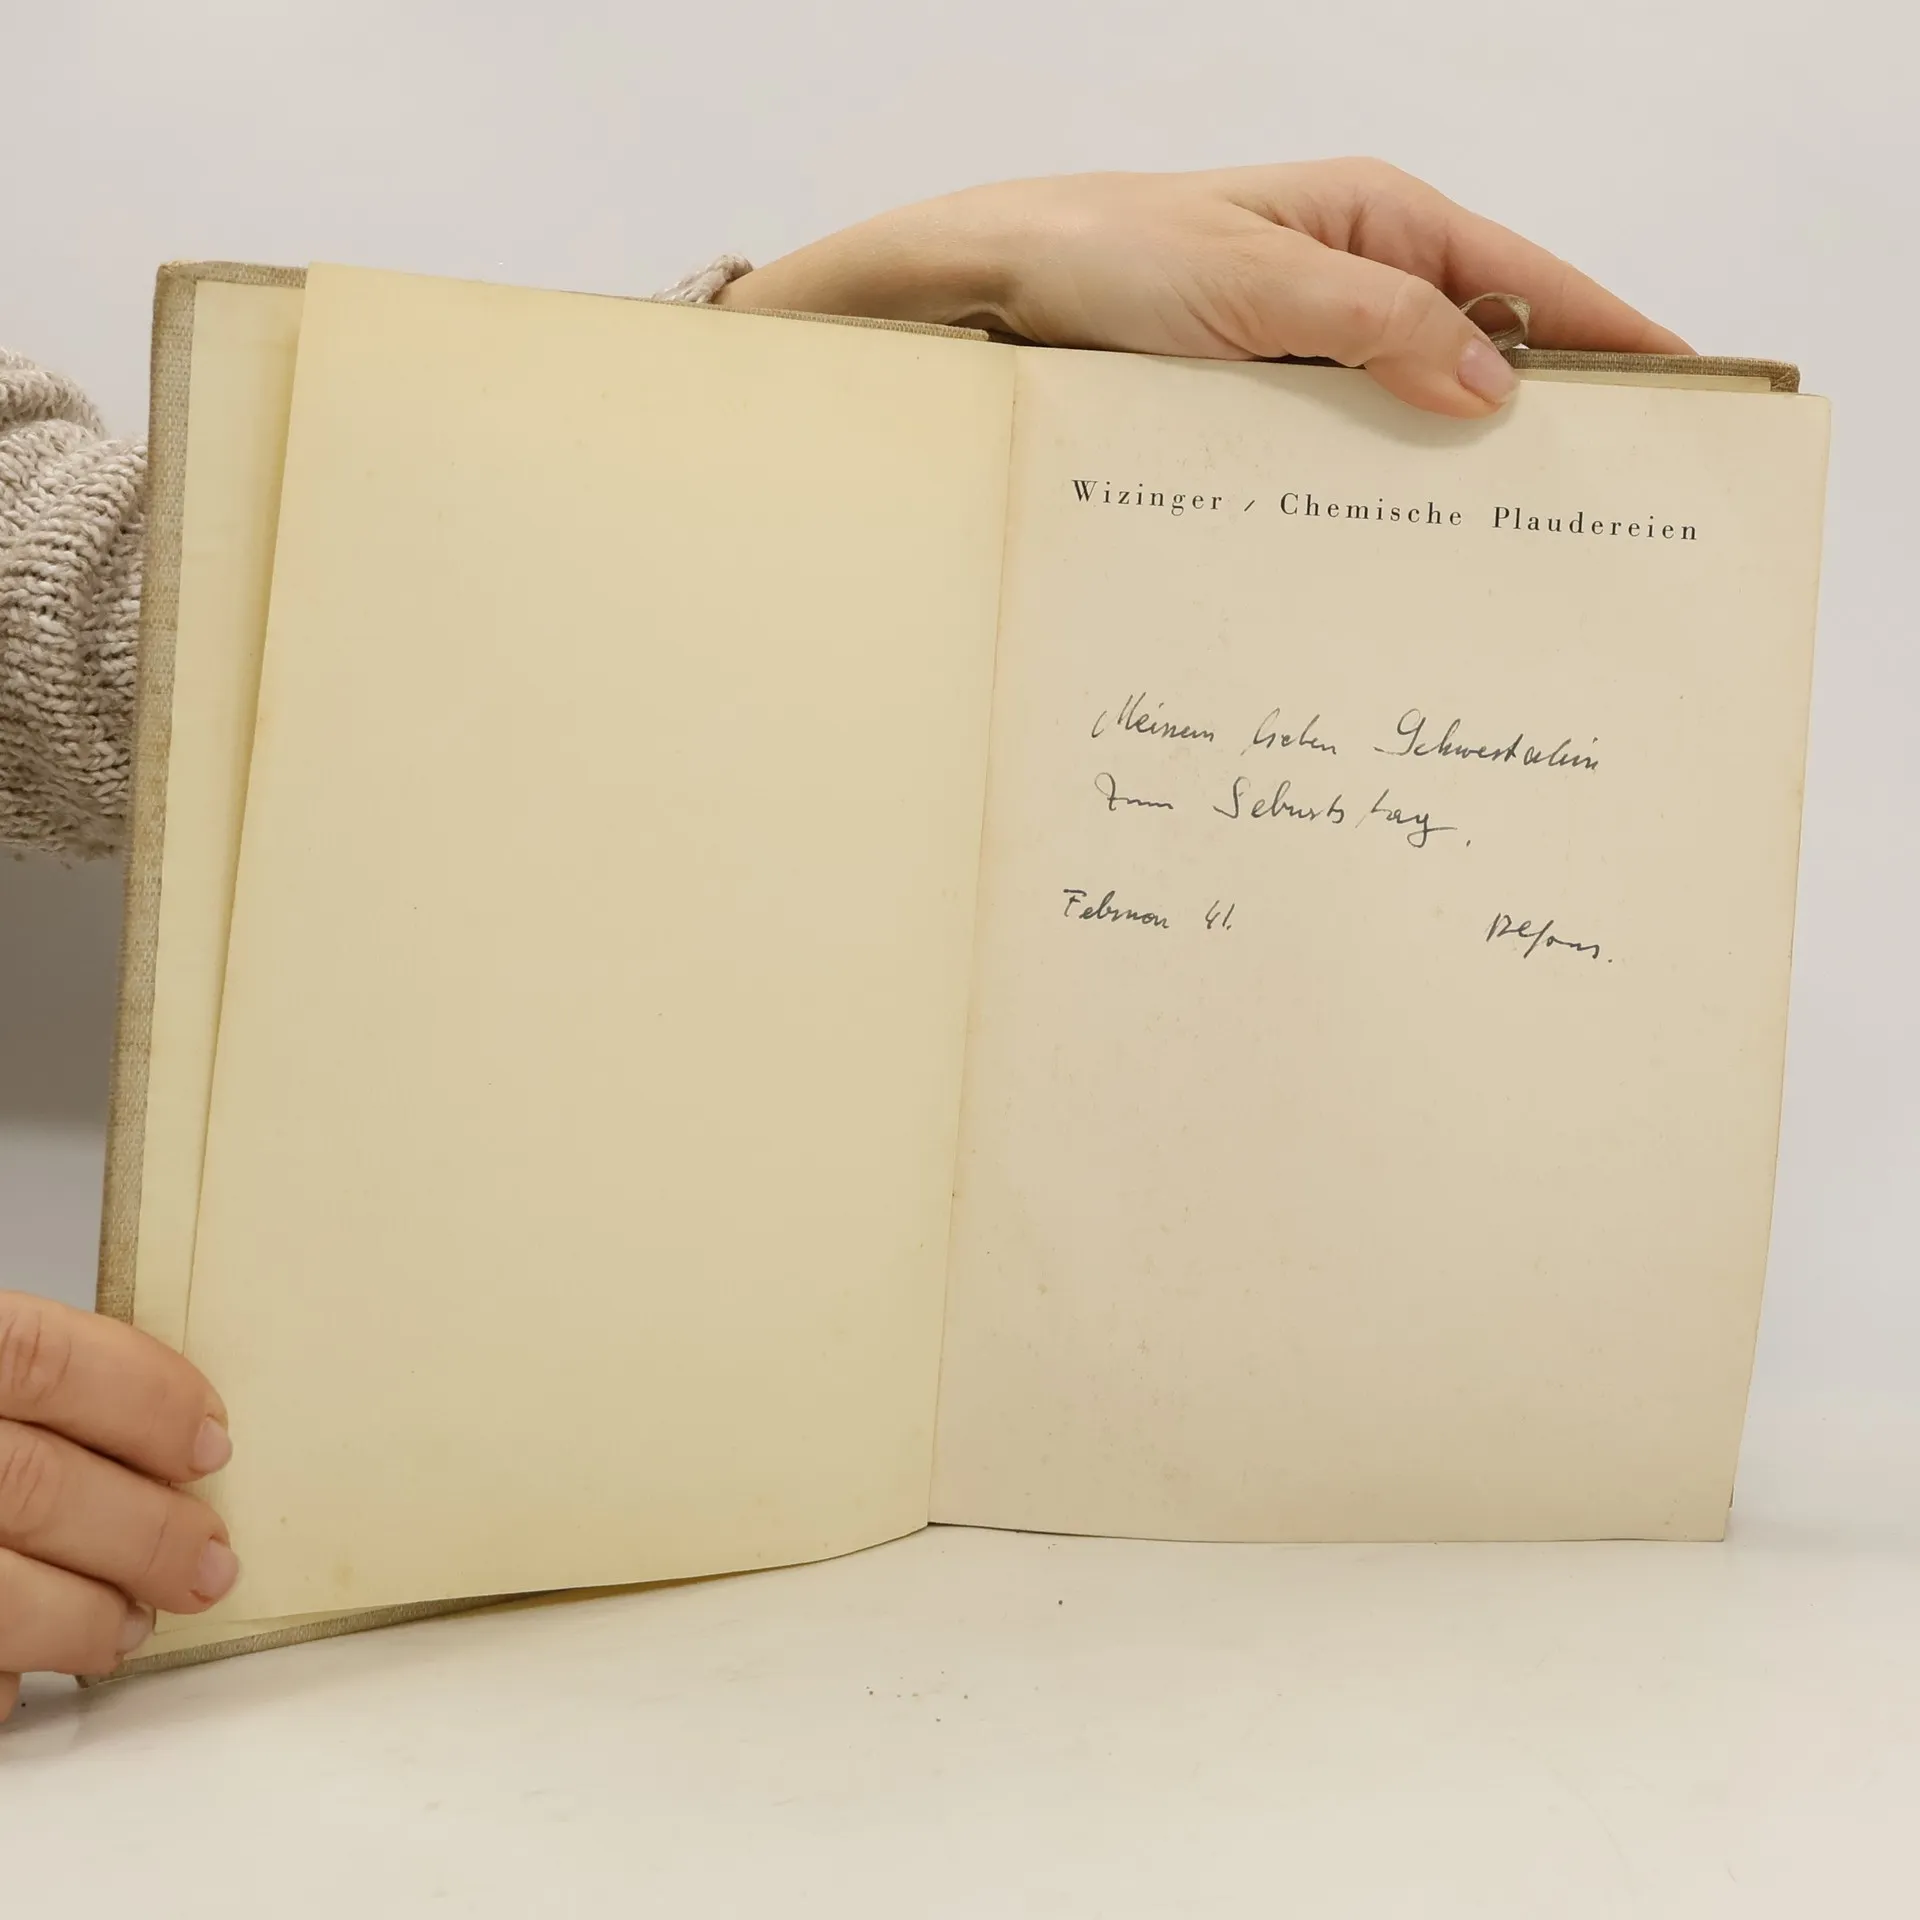 Wizinger / Chemische Plaudereien
Meinem lieben Schwesterlein
zum Geburtstag.
Februar 41. Alfons.